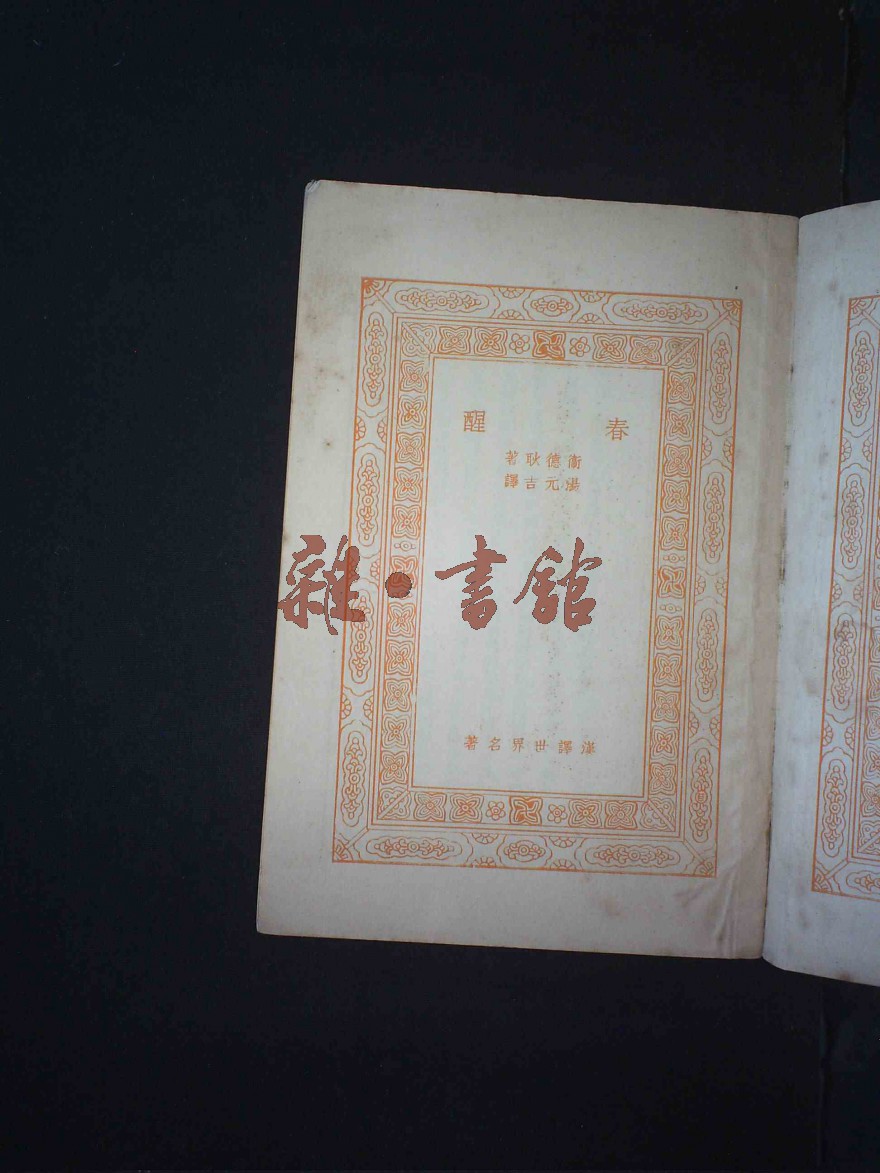 春醒
衞德耿著
湯元吉譯
雜·書館
漢譯世界名著